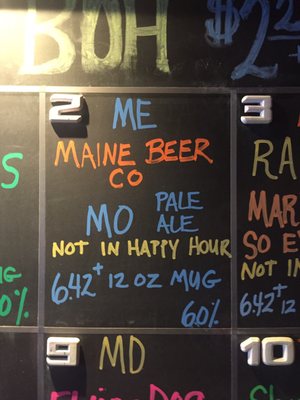 BDH $2
2 ME
MAINE BEER
CO
MO PALE
ALE
NOT IN HAPPY HOUR
6.42+ 12 OZ MUG
6.0%
3
RA
MAR
SO E
NOT IN
6.42+ 12
S
UG
0%
9 MD
10